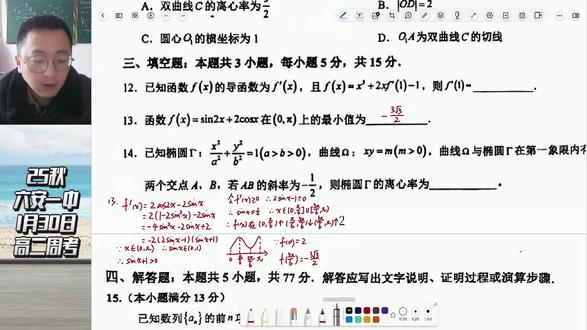 A. 双曲线C的离心率为
2
B. |OD|=2
C. 圆心O₁的横坐标为1
D. O₁A为双曲线C的切线
三、填空题：本题共3小题，每小题5分，共15分．
12. 已知函数f(x)的导函数为f′(x)，且f(x)=x³+2xf′(1)−1，则f′(1)=______．
13. 函数f(x)=sin2x+2cosx在(0,π)上的最小值为 −3√3/2 ．
14. 已知椭圆Γ：x²/a²+y²/b²=1(a>b>0)，曲线Ω：xy=m(m>0)，曲线Ω与椭圆Γ在第一象限内有
两个交点A、B，若AB的斜率为−1/2，则椭圆Γ的离心率为______．
13. f′(x)=2cos2x−2sinx
=2(1−2sin²x)−2sinx
=−4sin²x−2sinx+2
=−2(2sinx−1)(sinx+1)
∵x∈(0,π) ∴sinx∈(0,1)
∴sinx+1>0
令f′(x)=0 ∴2sinx−1=0
∴sinx=1/2
0 π
f(0)=2
f(5π/6)=−3√3/2
2
四、解答题：本题共5小题，共77分．解答应写出文字说明、证明过程或演算步骤．
15.（本小题满分13分）
已知数列{aₙ}的前n项
25秋
六安一中
1月30日
高二周考